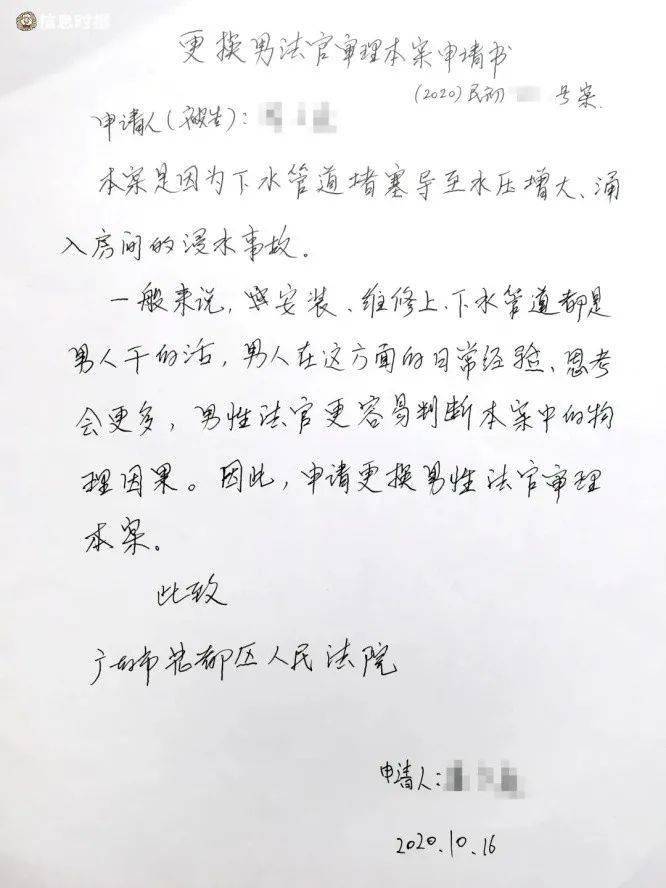 信息时报
更换男法官审理本案申请书
(2020)民初 号案
申请人(被告):
本案是因为下水管道堵塞导至水压增大、涌
入房间的浸水事故。
一般来说,安装、维修上、下水管道都是
男人干的活,男人在这方面的日常经验、思考
会更多,男性法官更容易判断本案中的物
理因果。因此,申请更换男性法官审理
本案。
此致
广州市花都区人民法院
申请人:
2020.10.16